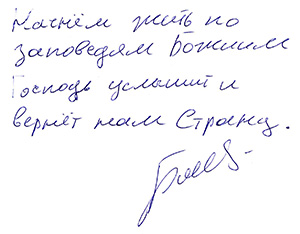 Начнём жить по
Заповедям Божиим
Господь услышит и
вернёт нам Страну.